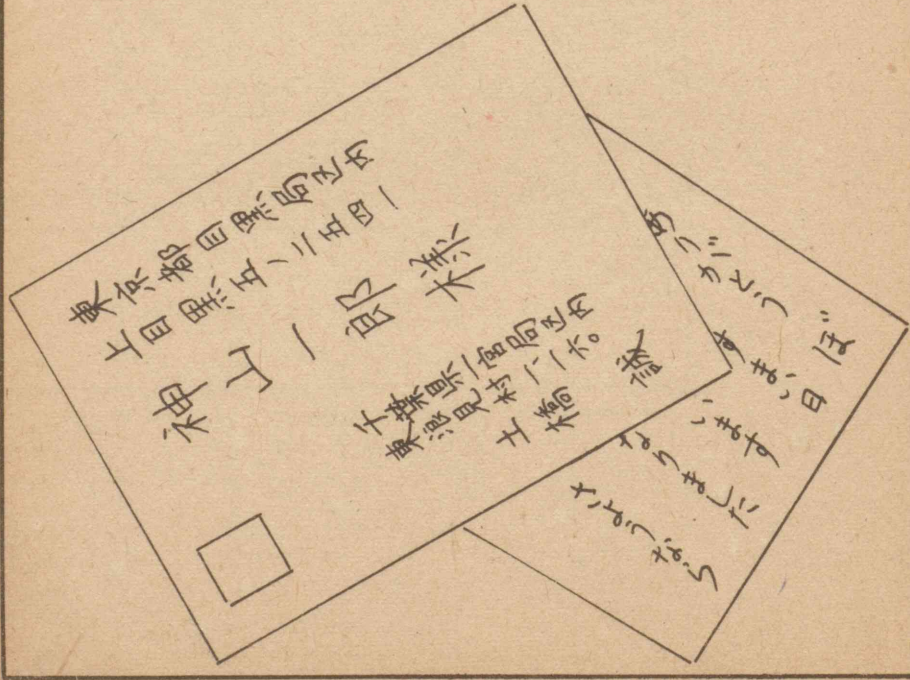 東京都目黒局区内
上目黒五ノ二五四一
神山一郎様
千葉県一宮局区内
東浪見村八一六〇
土橋 誠
ありがとう ぼ
すまい日
います
なりました
さようなら